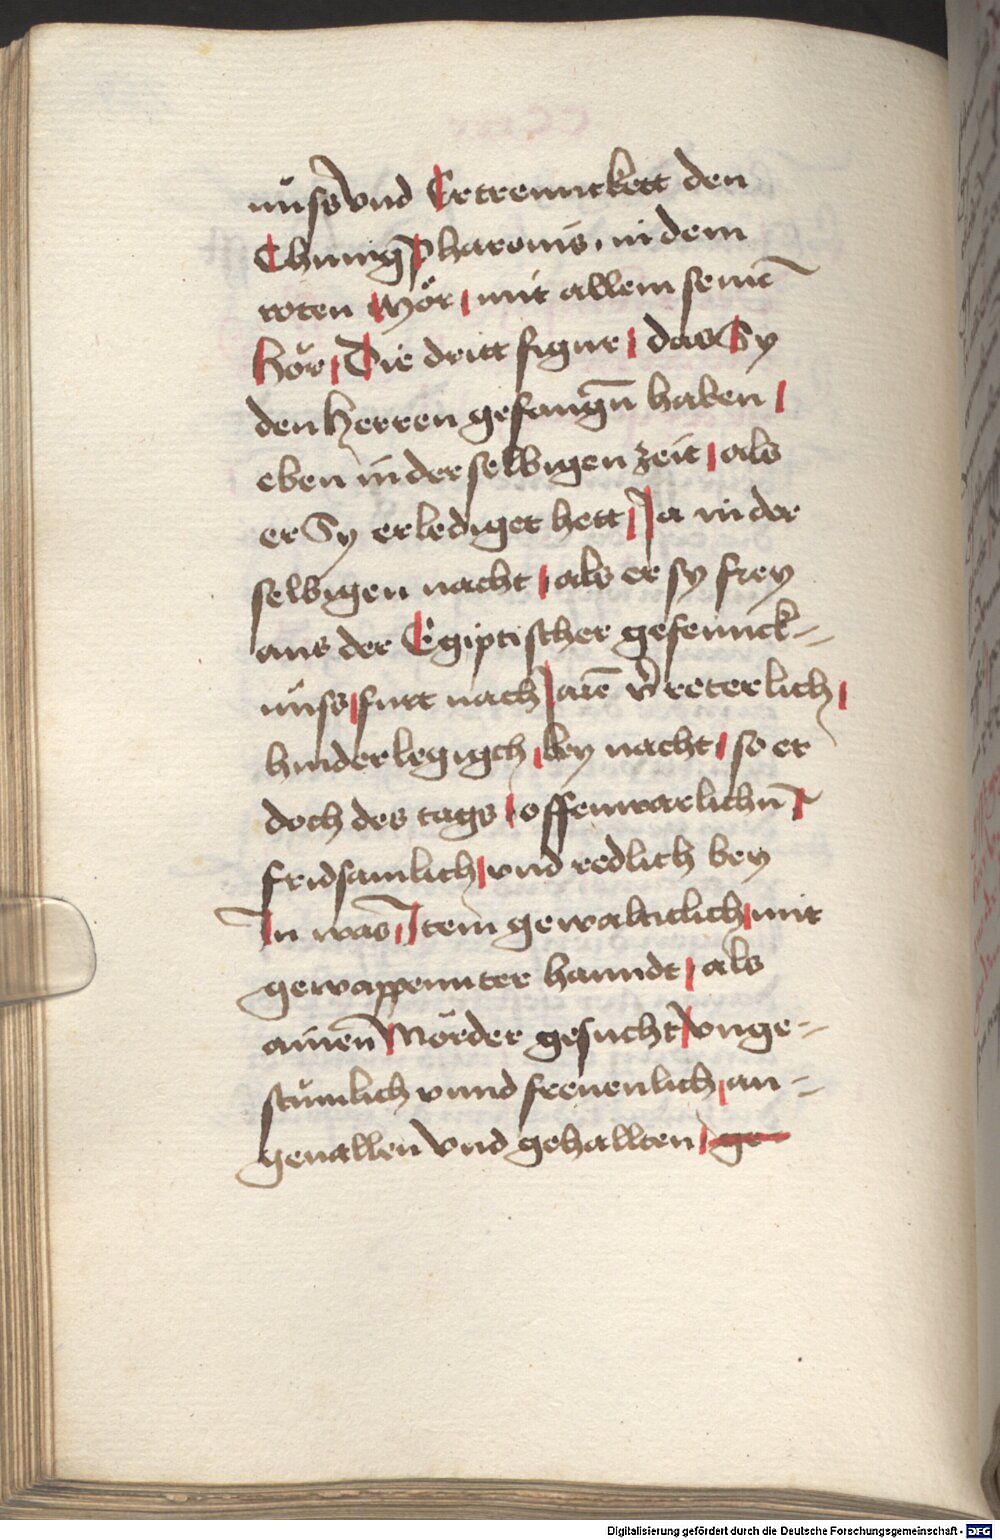 nu̇ss vnd Ertrennckett den
Chunig Pharonis, in dem
roten Mör, mit allem seine͞
Hör, Die dritt figur, das Sy
den Herren gefangn̄ haben,
eben in der selbigen zeit, als
er Sy erlediget hett, Ja in der
selbigen nacht, als er sy frey
aus der Egiptischer gefennck=
nu̇ss, furt nach Jare͞ v̄reterlich,
hinderlegigch, bey nacht, so er
doch des tags, offenwarlichn̄,
fridsamlich, vnd redlich bey
In was, Jtem gewalticlich, mit
gewappennter hanndt, als
ainen̄ Mörder gesucht, vnge=
stu̇mlich vnnd freuenlich, an=
geuallen vnd gehallten, ge
Digitalisierung gefördert durch die Deutsche Forschungsgemeinschaft - DFG